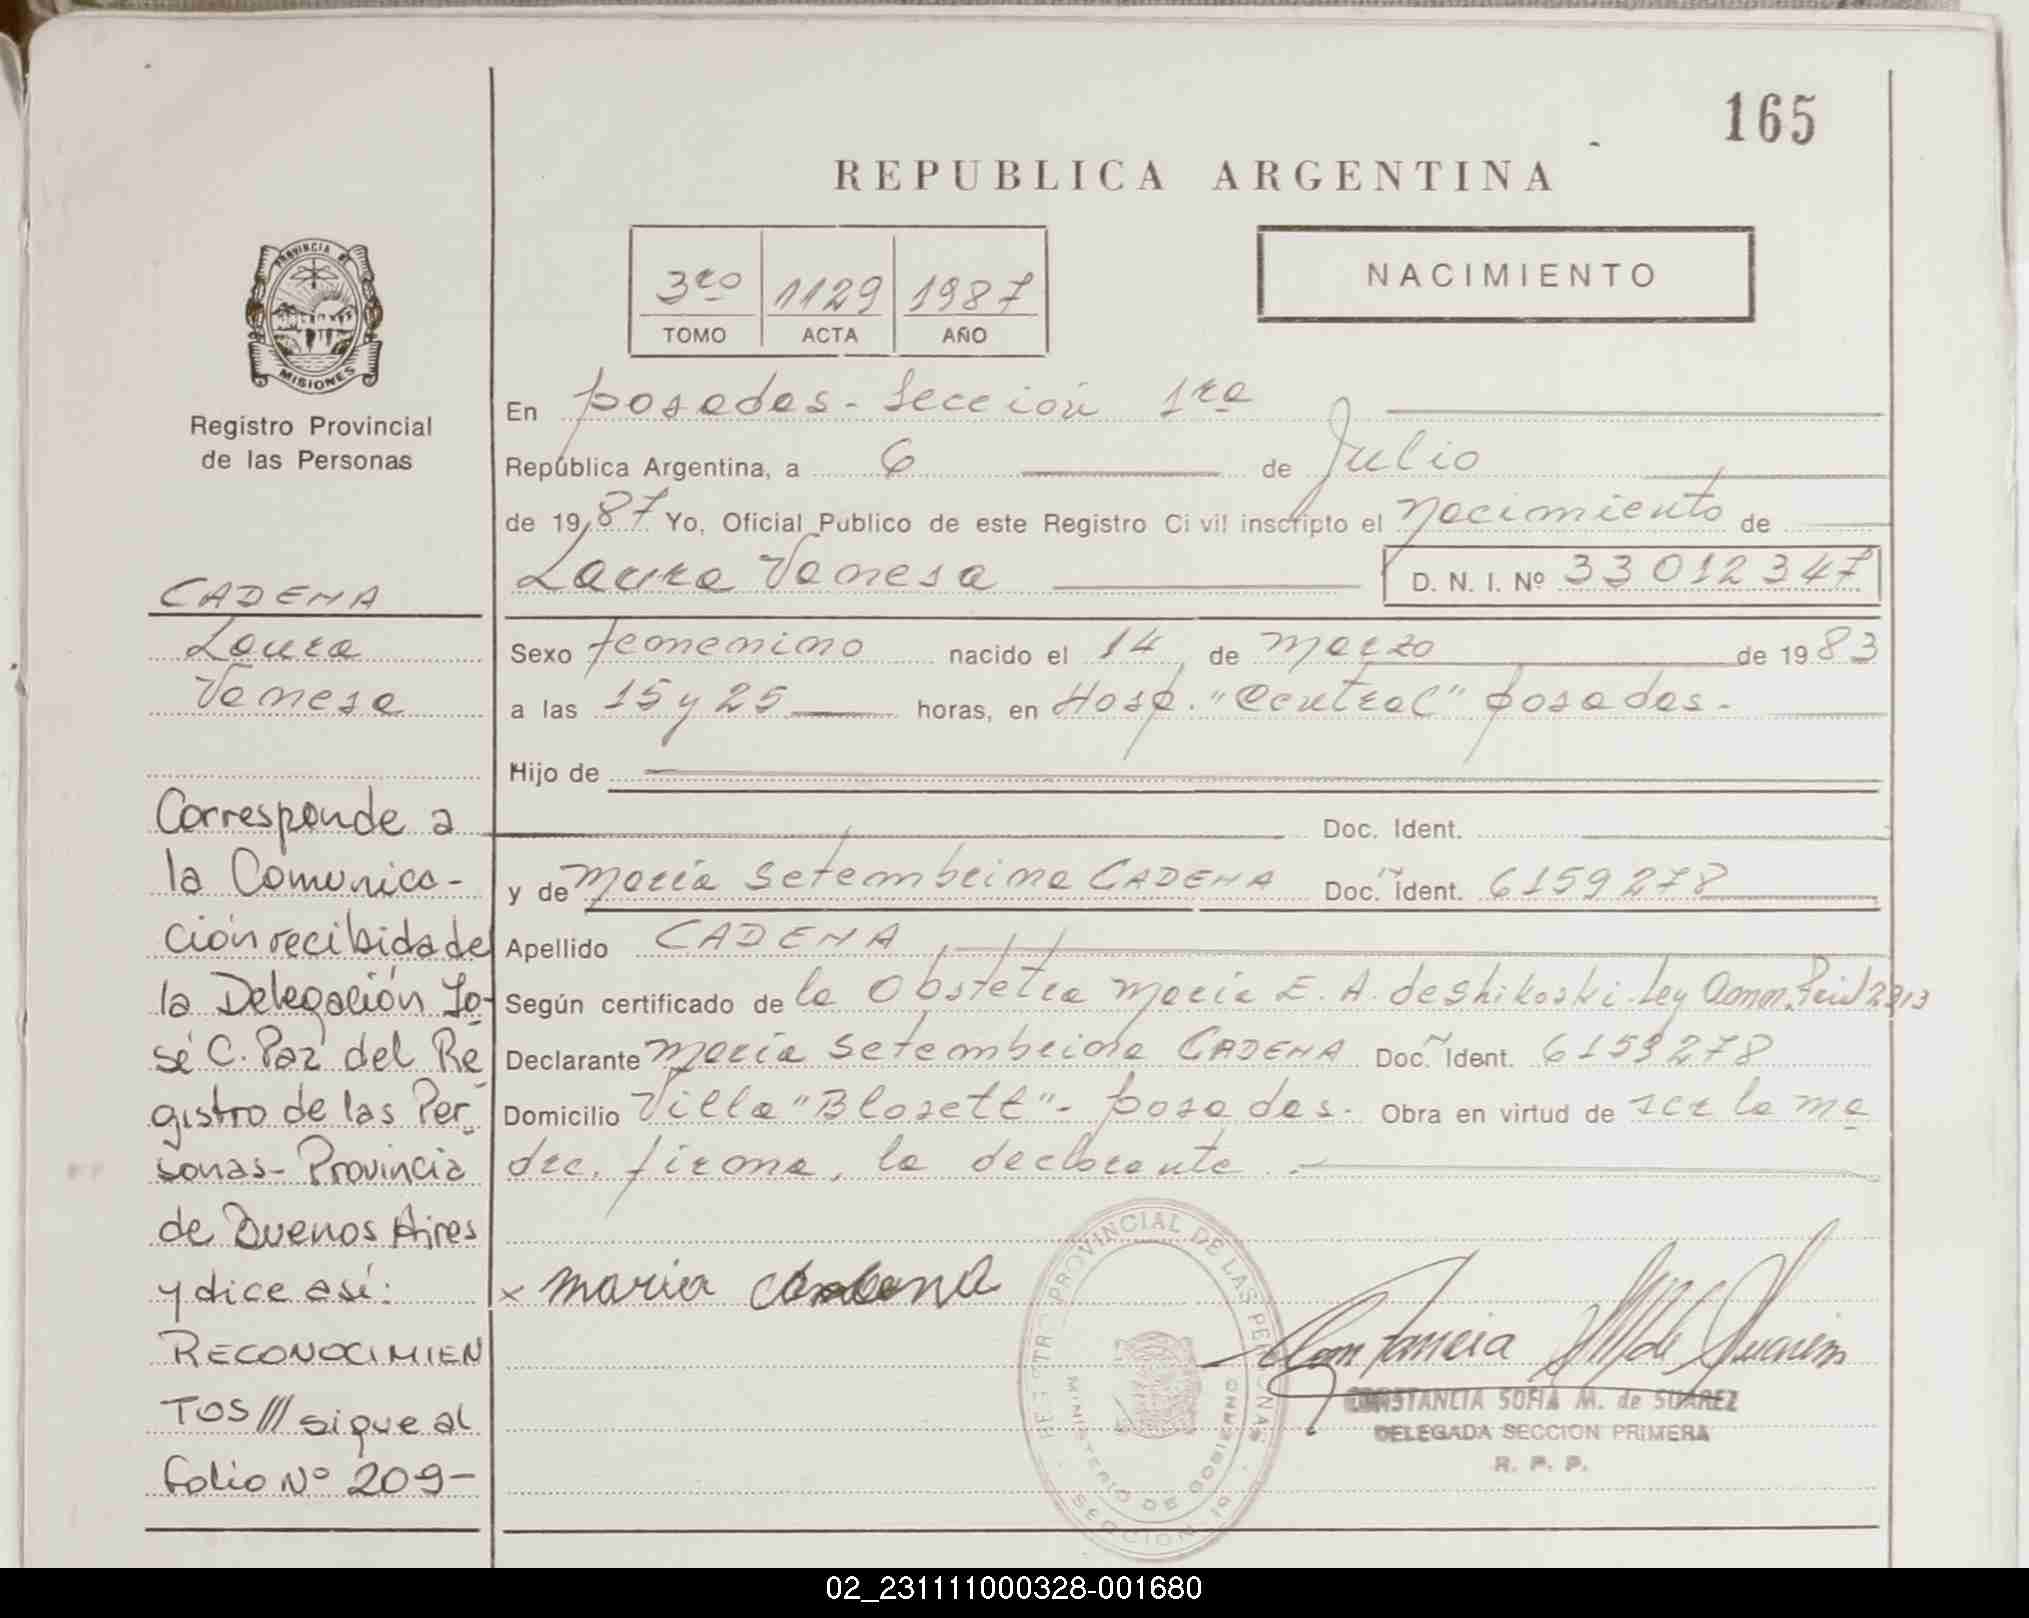 165
REPUBLICA ARGENTINA
3ro 1129 1987
TOMO ACTA AÑO
NACIMIENTO
PROVINCIA DE
MISIONES
Registro Provincial
de las Personas
En Posadas - Sección 1ra
República Argentina, a 6 de Julio
de 1987 Yo, Oficial Público de este Registro Civil inscripto el Nacimiento de
Laura Vanesa D. N. I. Nº 33012347
Sexo femenino nacido el 14 de Marzo de 1983
a las 15 y 25 horas, en Hosp. "Central" Posadas.-
Hijo de
Doc. Ident.
y de María Setembrina CADENA Doc. Ident. 6159278
Apellido CADENA
Según certificado de la Obstetra María E. A. de Shikoski. Ley
Declarante María Setembrina CADENA Doc. Ident. 6159278
Domicilio Villa "Blosett"- Posadas.- Obra en virtud de ser la ma
dre. firma, la declarante.-
x maria cadena
CONSTANCIA SOFIA M. de SUAREZ
DELEGADA SECCION PRIMERA
R. P. P.
REGISTRO PROVINCIAL DE LAS PERSONAS
MINISTERIO DE GOBIERNO
SECCION 1a
CADENA
Laura
Vanesa
Corresponde a
la Comunica-
ción recibida de
la Delegación Jo-
sé C. Paz del Re
gistro de las Per
sonas- Provincia
de Buenos Aires
y dice así:
RECONOCIMIEN
TOS /// sigue al
folio Nº 209-
02_231111000328-001680